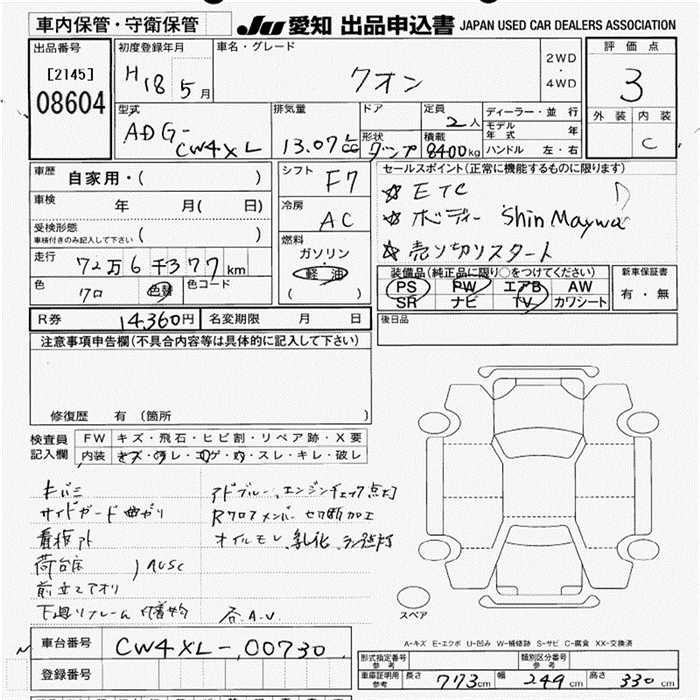 車内保管・守衛保管 JU 愛知 出品申込書 JAPAN USED CAR DEALERS ASSOCIATION
出品番号 初度登録年月 車名・グレード 評価点
[2145] H 18 5月 クオン 2WD・4WD 3
08604
型式 排気量 ドア 定員 2人 ディーラー・並行 外装 内装
ADG- 13.07 L cc 形状 積載 モデル年式 年 C
CW4XL ダンプ 8400kg ハンドル 左・右
車歴 自家用・( ) シフト F7 セールスポイント(正常に機能するものに限ります)
車検 年 月( 日) 冷房 AC ☆ ETC
受検形態 ( ) ☆ ボディー ShinMaywa
車検付きのみ記入して下さい
燃料 ☆ 売り切りスタート
走行 72万6千377km ガソリン・軽油
色 クロ 色替 色コード ( )
装備品(純正品に限り○をつけてください) 新車保証書
PS PW エアB AW 有・無
SR ナビ TV カワシート
R券 14,360円 名変期限 月 日 後日品
注意事項申告欄(不具合内容等は具体的に記入して下さい)
修復歴 有 (箇所 )
検査員記入欄 FW キズ・飛石・ヒビ割・リペア跡・X要
内装 キズ・汚レ・コゲ・穴・スレ・キレ・破レ
キバミ アドブルー、エンジンチェック点灯
サイドガード曲がり Rクロスメンバー切断加工
オイルモレ、乳化、ランプ点灯
荷台床
前立てアオリ
下廻りフレーム
各A.U.
スペア
A-キズ E-エクボ U-凹み W-補修跡 S-サビ C-腐食 XX-交換済
車台番号 CW4XL-00730
登録番号
形式指定番号 参考 類別区分番号 参考
車庫証明用 参考 長さ 773cm 幅 249cm 高さ 330cm